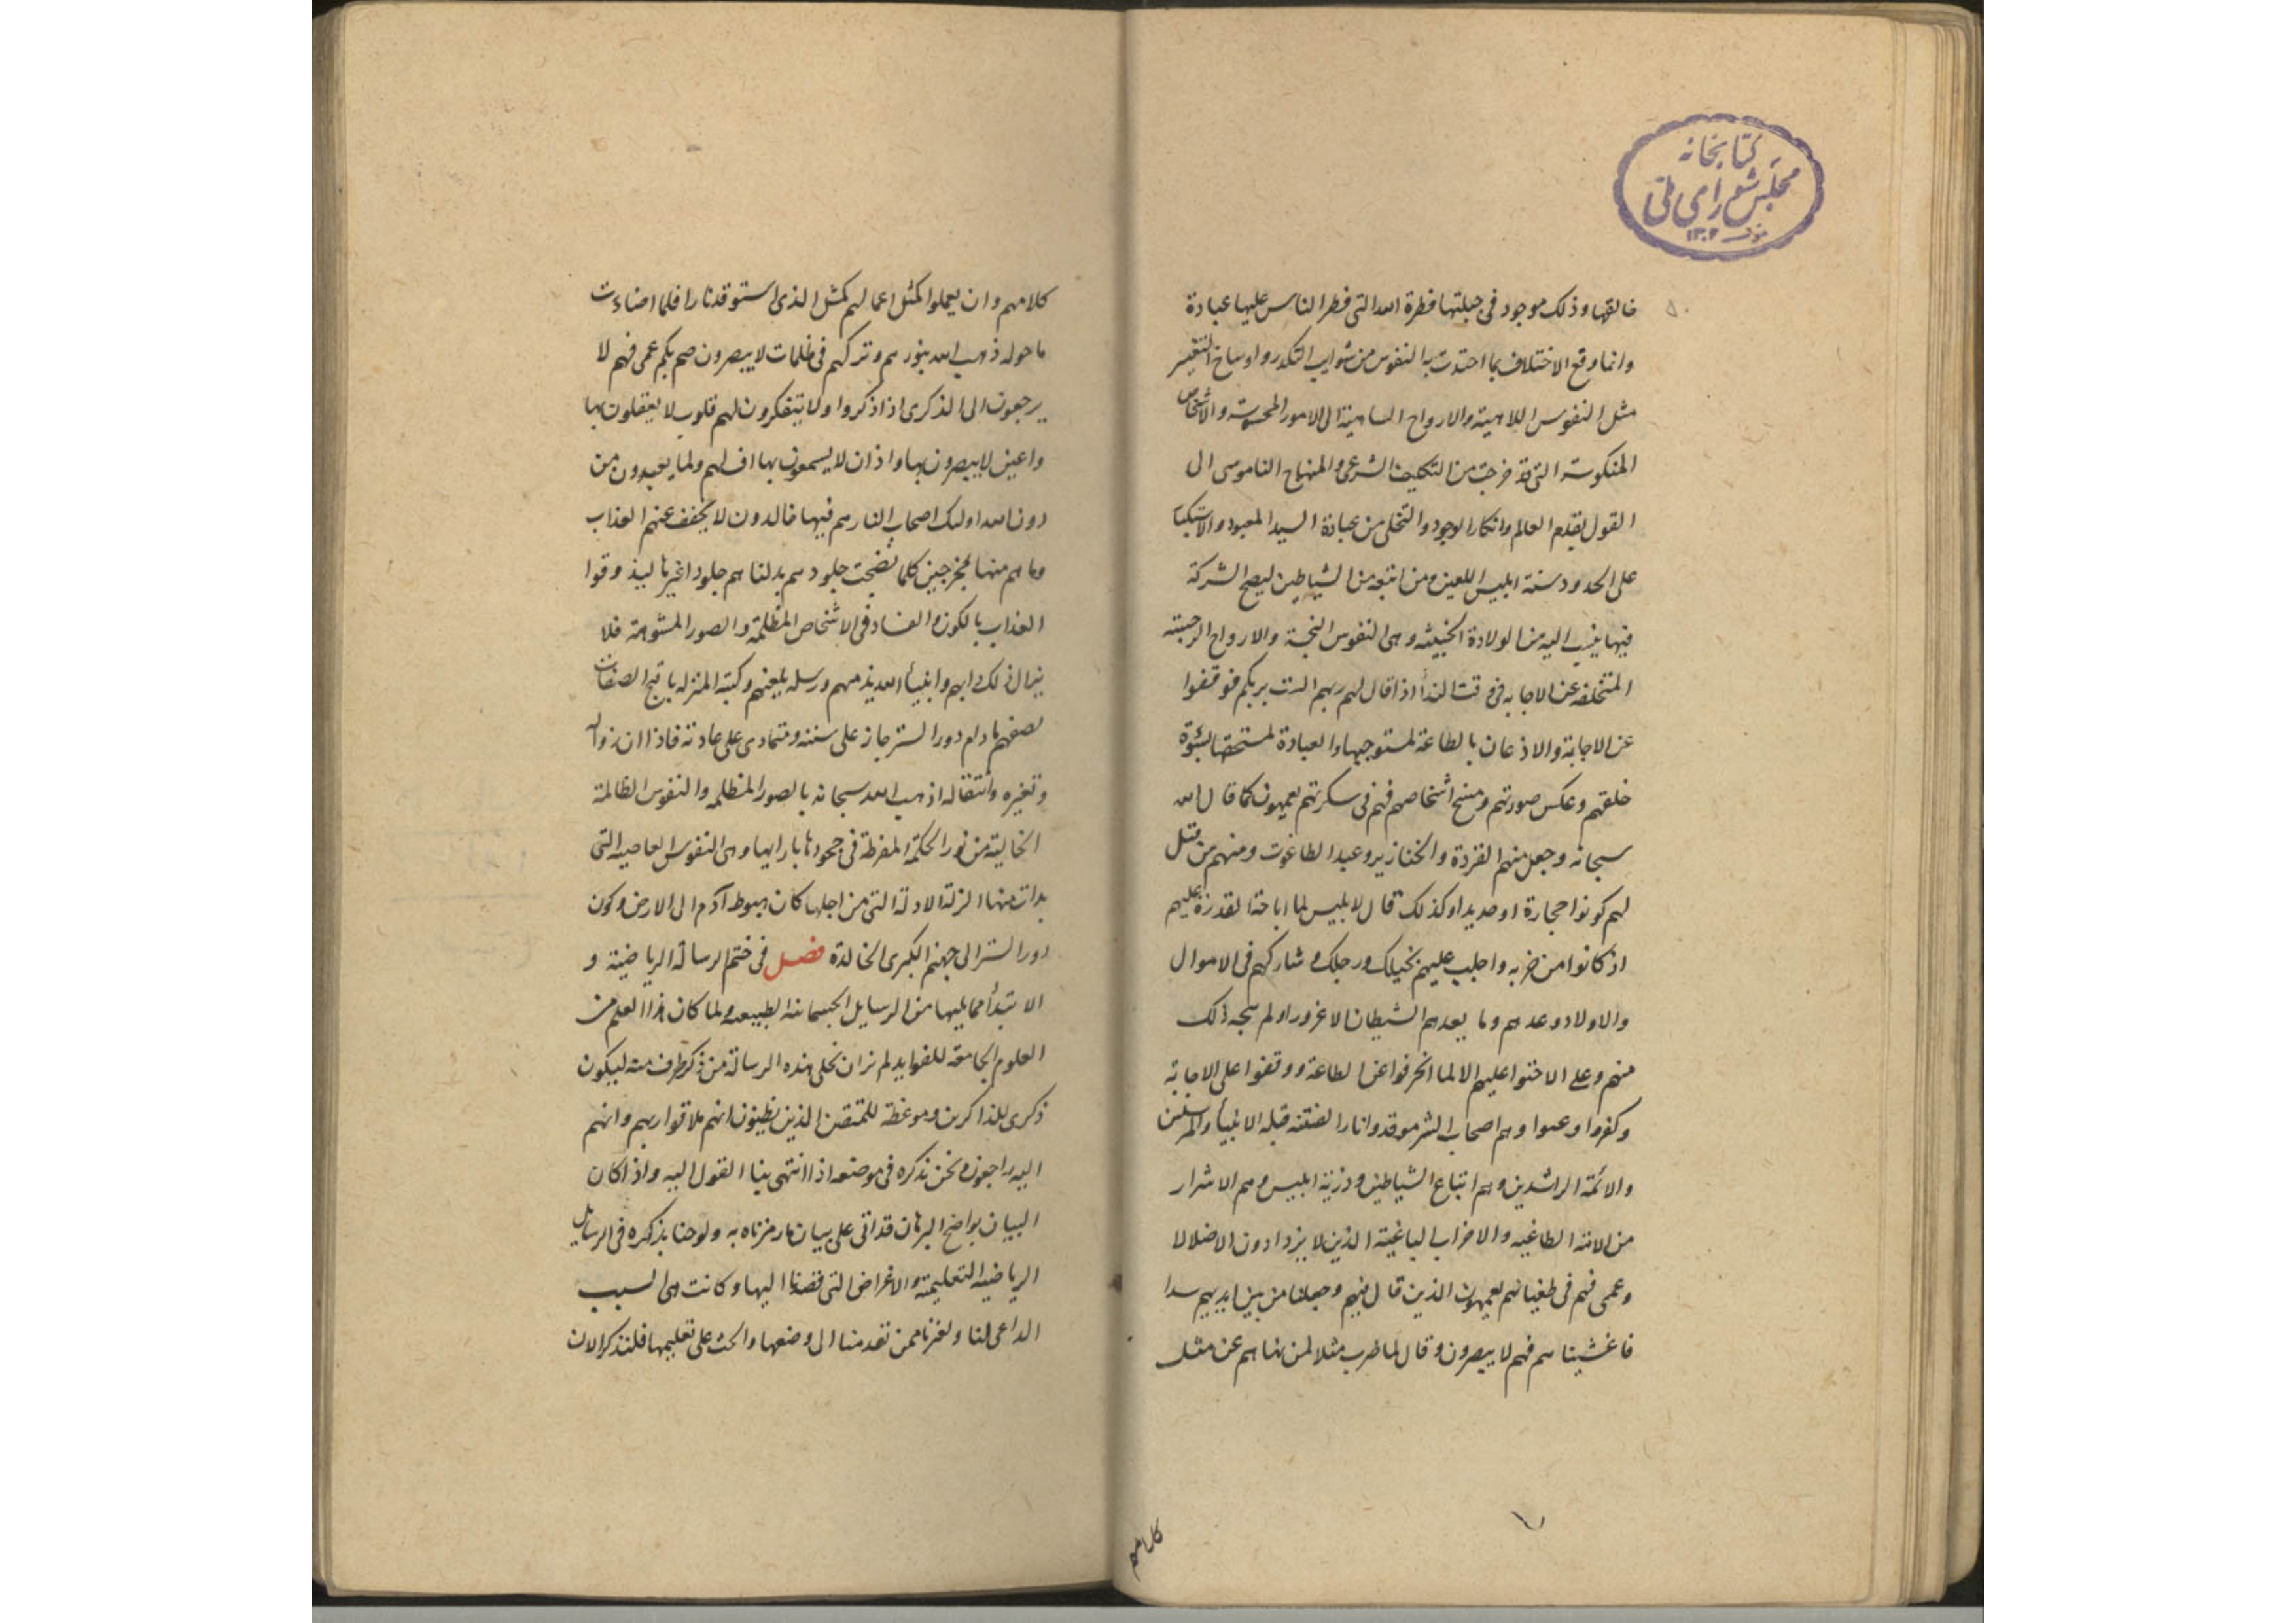 كتابخانه
مجلس شورای ملی
١٣٠٢
خالقها وذلك موجود فى جبلتها فطرة الله التى فطر الناس عليها عبادة
وانما وقع الاختلاف بما احتدت به النفوس من شوايب التكدر واوساخ التغيير
مثل النفوس اللاهية والارواح الساهية الى الامور المحسوسة والاشخاص
المنكوسة التى قد خرجت من التكليف الشرعى والمنهاج الناموسى الى
القول بقدم العالم وانكار الوجود والتخلى من عبادة السيد المعبود والاستكبار
على الحدود سنة ابليس اللعين ومن اتبعه من الشياطين ليصح الشركة
فيها ينسب اليه من الولادة الخبيثه وهى النفوس النجسة والارواح الرجسة
المتخلفه عن الاجابه فى وقت الندأ اذا قال لهم ربهم الست بربكم فوقفوا
عن الاجابة والاذعان بالطاعة لمستوجبها والعبادة لمستحقها بشوة
خلقهم وعكس صورتهم ومسخ اشخاصهم فهم فى سكرتهم يعمهون كما قال الله
سبحانه وجعل منهم القردة والخنازير وعبد الطاغوت ومنهم من قيل
لهم كونوا حجارة او حديدا وكذلك قال لابليس لما اباحه القدرة عليهم
اذ كانوا من حزبه واجلب عليهم بخيلك ورجلك وشاركهم فى الاموال
والاولاد وعدهم وما يعدهم الشيطان الا غرورا ولم يبجه ذلك
منهم وعلى الاحتوا عليهم الا لما انحرفوا عن الطاعة ووقفوا على الاجابة
وكفروا وعموا وهم اصحاب الشر موقدوا نار الفتنه قبله الانبيأ والمرسلين
والائمة الراشدين وهم اتباع الشياطين وذرية ابليس وهم الاشرار
من الامة الطاغيه والاحزاب الباغية الذين لا يزدادون الا ضلالا
وعمى فهم فى طغيانهم يعمهون الذين قال فيهم وجعلنا من بين ايديهم سدا
فاغشيناهم فهم لا يبصرون وقال لما ضرب مثلا لمن نهاهم عن مثل
كلامهم
كلامهم وان يعملوا كمثل اعمالهم كمثل الذى استوقد نارا فلما اضاءت
ما حوله ذهب الله بنورهم وتركهم فى ظلمات لا يبصرون صم بكم عمى فهم لا
يرجعون الى الذكرى اذا ذكروا ولا يتفكرون لهم قلوب لا يعقلون بها
واعين لا يبصرون بها واذان لا يسمعون بها اف لهم ولما يعبدون من
دون الله اولئك اصحاب النار هم فيها خالدون لا يخفف عنهم العذاب
وما هم منها بمخرجين كلما نضجت جلودهم بدلناهم جلودا غيرها ليذوقوا
العذاب بالكون والفساد فى الاشخاص المظلمة والصور المشوهة فلا
يزال ذلك دابهم وانبيأ الله يذمهم ورسله يلعنهم وكتبه المنزله باقبح الصفات
تصفهم ما دام دور الستر جاز على سننه ومتمادى على عادته فاذا ان زواله
وتغيره وانتقاله اذهب الله سبحانه بالصور المظلمه والنفوس الظالمة
الخالية من نور الحكمة المفرطة فى جحودها باراها وهى النفوس العاصيه التى
بدات منها الزلة الاولة التى من اجلها كان هبوط آدم الى الارض وكون
دور الستر الى جهنم الكبرى الخالدة فصل فى ختم الرسالة الرياضية و
الا بتدأ مما يليها من الرسايل الجسمانيه الطبيعيه ولما كان هذا العلم من
العلوم الجامعة للفوايد لم نر ان نخلى هذه الرسالة من ذكر طرف منه ليكون
ذكرى للذاكرين وموعظة للمتقين الذين يظنون انهم ملاقوا ربهم وانهم
اليه راجعون ونحن نذكره فى موضعه اذا انتهى بنا القول اليه واذا كان
البيان بواضح البرهان قد اتى على بيان ما رمزناه به ولوحنا بذكره فى الرسايل
الرياضيه التعليمية والاغراض التى قصدنا اليها وكانت هى السبب
الداعى لنا ولغيرنا ممن تقدمنا الى وضعها والحث على تعليمها فلنذكر الان